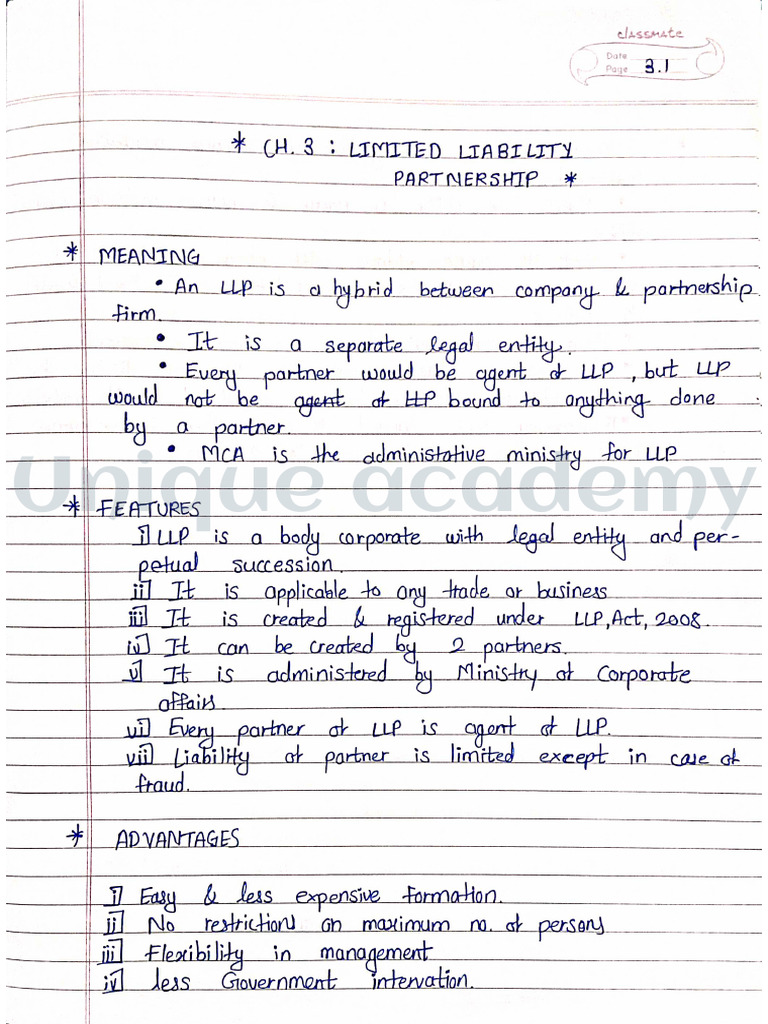 classmate
Date
Page 3.1
* CH. 3 : LIMITED LIABILITY
PARTNERSHIP *
* MEANING
• An LLP is a hybrid between company & partnership
firm.
• It is a separate legal entity.
• Every partner would be agent of LLP, but LLP
would not be agent of LLP bound to anything done
by a partner.
• MCA is the administative ministry for LLP
Unique academy
* FEATURES
i] LLP is a body corporate with legal entity and per-
petual succession.
ii] It is applicable to any trade or business
iii] It is created & registered under LLP, Act, 2008.
iv] It can be created by 2 partners.
v] It is administered by Ministry of Corporate
affairs.
vi] Every partner of LLP is agent of LLP.
vii] Liability of partner is limited except in case of
fraud.
* ADVANTAGES
i] Easy & less expensive formation.
ii] No restrictions on maximum no. of persons
iii] Flexibility in management
iv] less Government intervation.